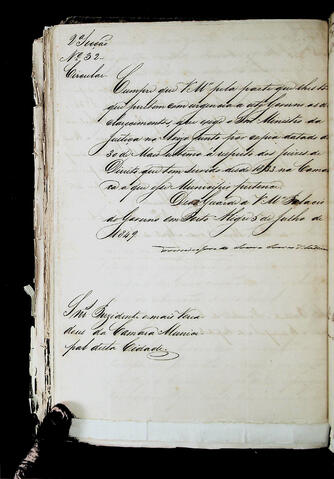 2ª Secção
Nº 32
Circular
Cumpre que VMce pela parte que lhe toca
que prestem com urgencia a este Governo os es
clarecimentos que exige o Snr Ministro da
Justiça no Avizo junto por copia datado de
30 de Maio ultimo á respeito dos juizes de
Direito que tem servido desde 1833 na Comar
ca a que esse Municipio pertence.
Deos Guarde a VMces Palacio
do Governo em Porto Alegre 3 de julho de
1849
Snres Prezidente e mais Verea
dores da Camara Munici
pal desta Cidade